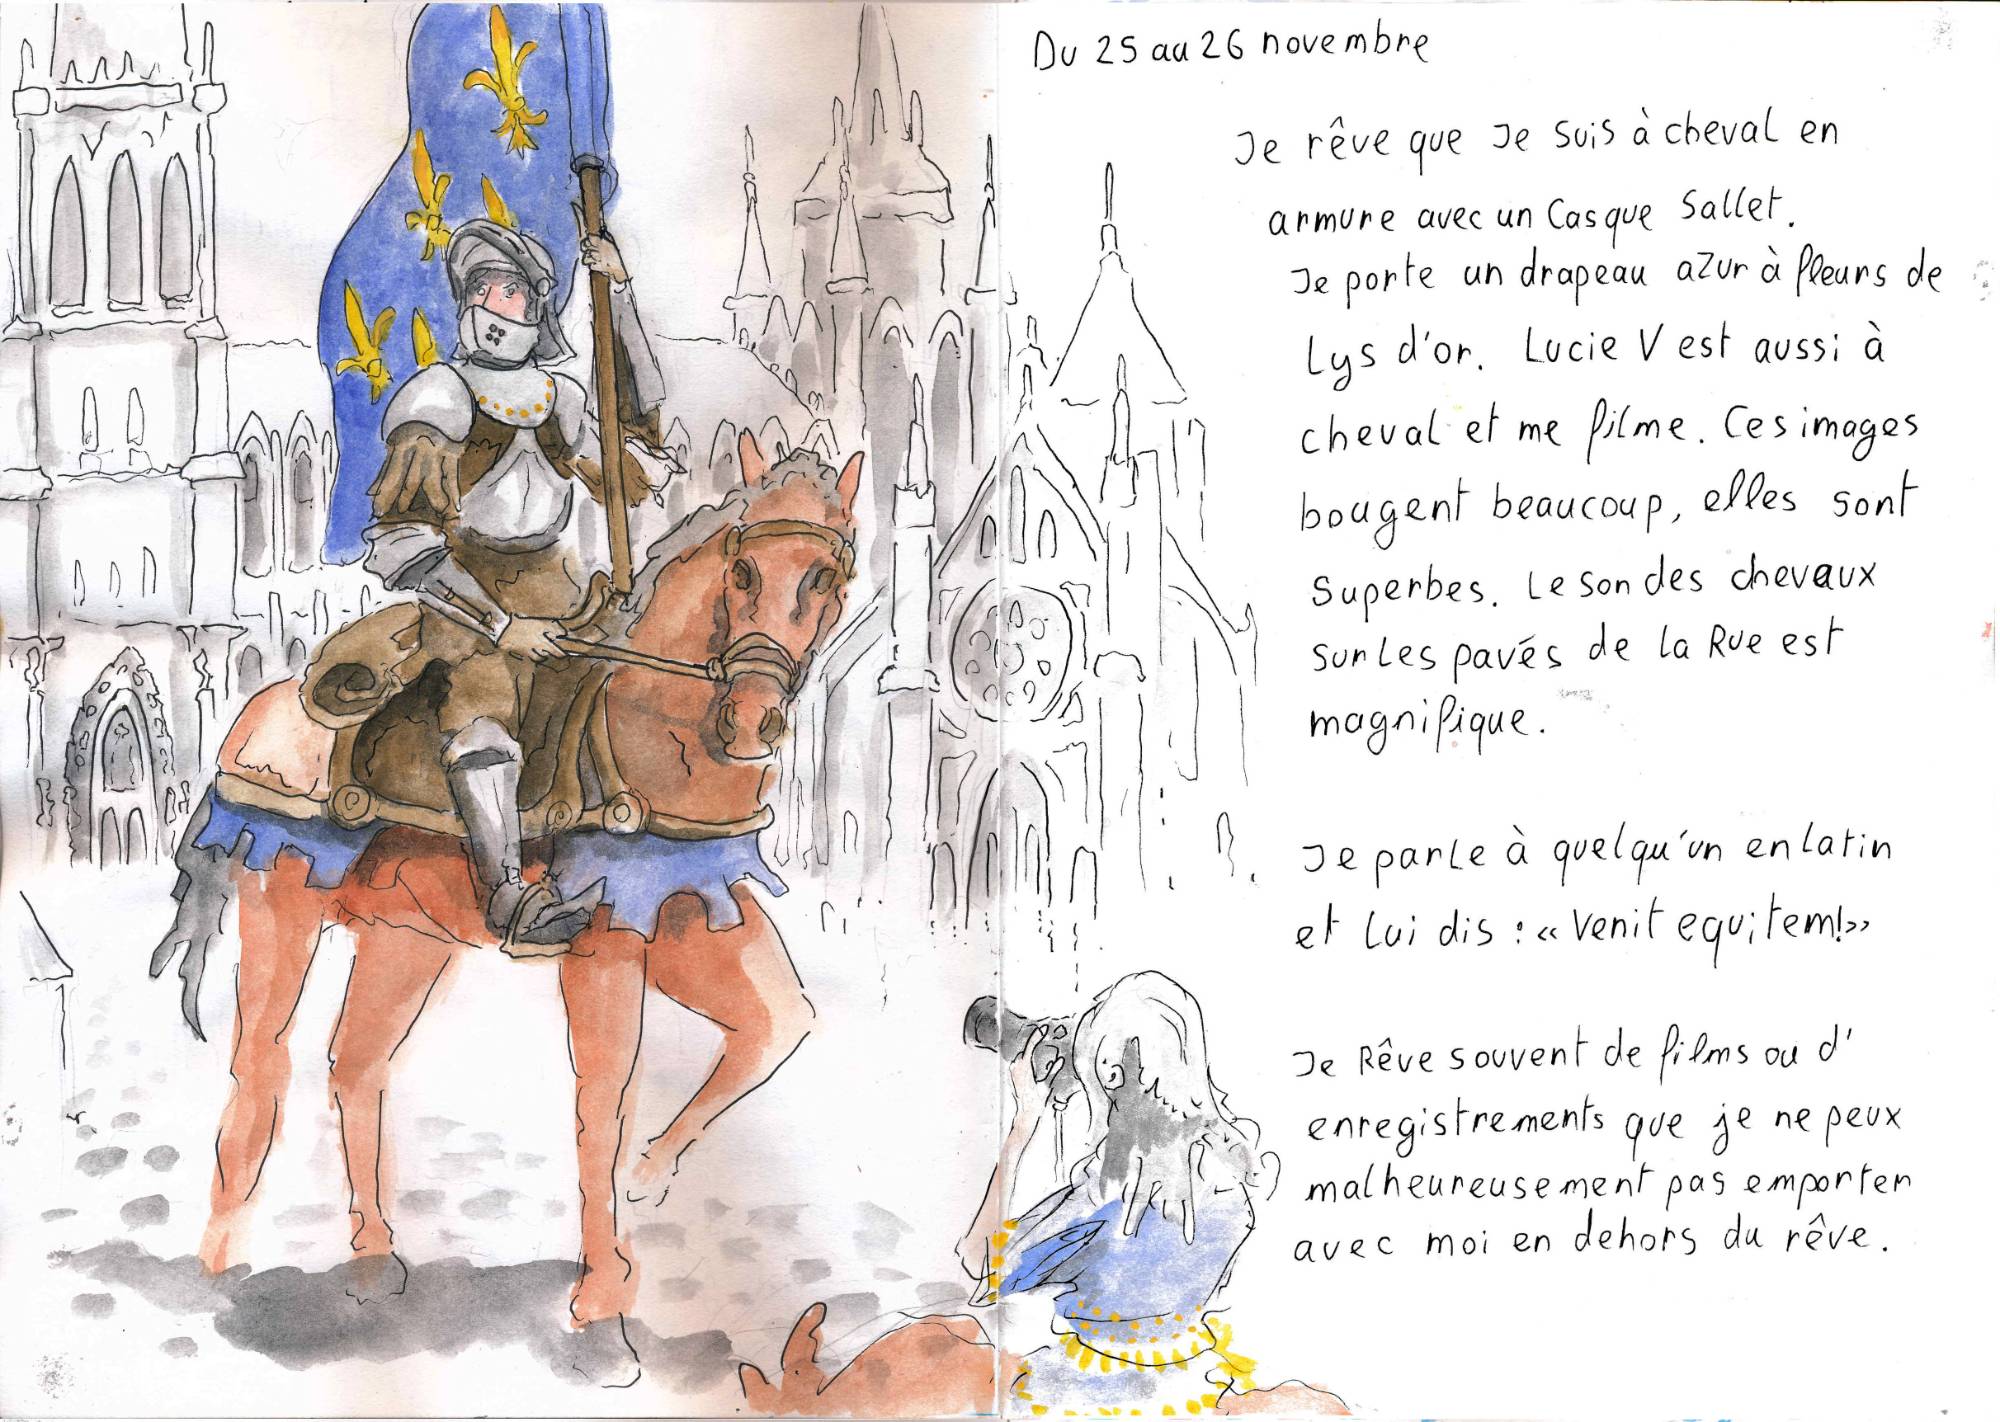 Du 25 au 26 novembre
Je rêve que Je suis à cheval en
armure avec un Casque Sallet.
Je porte un drapeau azur à fleurs de
Lys d'or. Lucie V est aussi à
cheval et me filme. Ces images
bougent beaucoup, elles sont
superbes. Le son des chevaux
sur Les pavés de la Rue est
magnifique.
Je parle à quelqu'un en latin
et Lui dis : « Venit equitem!»
Je Rêve souvent de films ou d'
enregistrements que je ne peux
malheureusement pas emporter
avec moi en dehors du rêve.